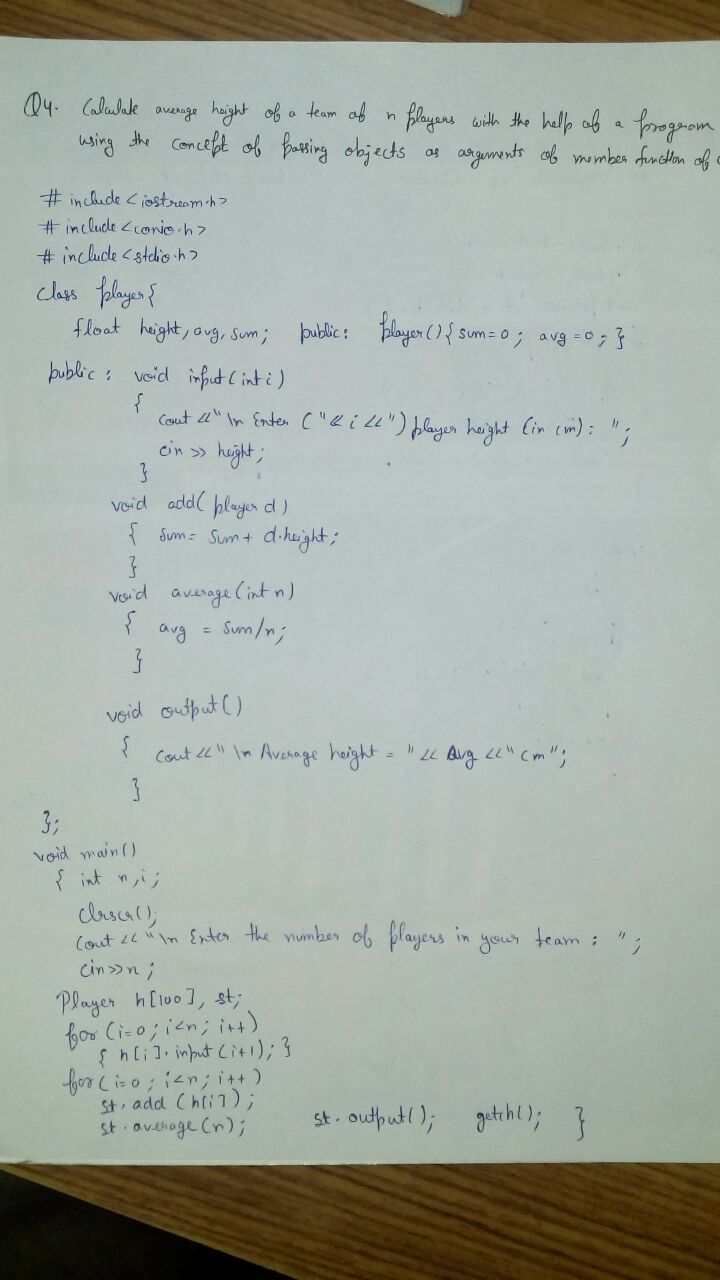 Q4. Calculate average height of a team of n players with the help of a program
using the concept of passing objects as arguments of member function of
# include <iostream.h>
# include <conio.h>
# include <stdio.h>
class player{
float height, avg, sum; public: player(){ sum=0; avg=0; }
public: void input(int i)
{
cout <<"\n Enter ("<< i <<") player height (in cm): ";
cin >> height;
}
void add( player d)
{ sum= sum+ d.height;
}
void average(int n)
{ avg = sum/n;
}
void output()
{ cout <<"\n Average height = "<< avg <<" cm";
}
};
void main()
{ int n,i;
clrscr();
cout <<"\n Enter the number of players in your team : ";
cin>>n;
Player h[100], st;
for (i=0; i<n; i++)
{ h[i].input(i+1); }
for(i=0; i<n; i++)
st.add (h[i]);
st.average(n); st.output(); getch(); }